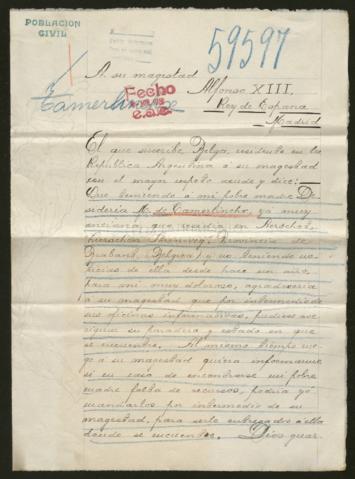 POBLACION
CIVIL
59597
A su magestad
Alfonso XIII,
Rey de España
Madrid
Fecho
El que suscribe Belga, residente en la
República Argentina á su magestad
con el mayor respeto acude y dice:
Que teniendo á mi pobre madre De
sideria M. de Tamerlincke, ya muy
anciana, que residía en Herschot,
Provincia de
Brabant, Belgica) y no teniendo no
ticias de ella desde hace un año,
para mi muy doloroso, agradecería
á su magestad que por intermedio de
sus oficinas informativas, pudiese ave
riguar su paradero y estado en que
se encuentre. Al mismo tiempo rue
go á su magestad quiera informarme
si en caso de encontrarse mi pobre
madre falta de recursos, podría yo
mandarlos por intermedio de su
magestad, para serle entregados á ella
donde se encuentre. Dios guar